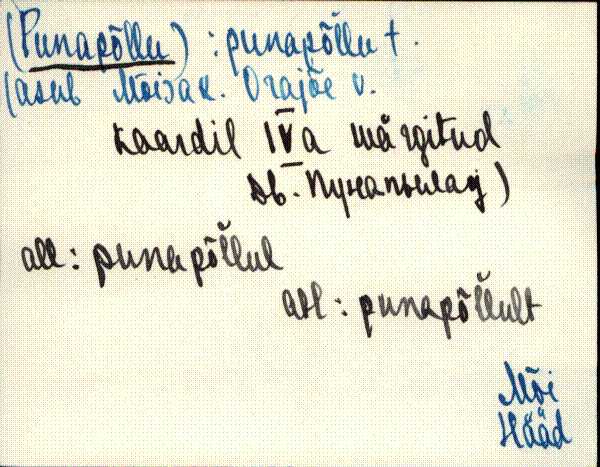 (Punapõllu) : punapõllu t.
(asub Mõisak. Orajõe v.
kaardil IVa märgitud
дв. Пунапыллу)
all : punapõl̆lul
abl : punapõl̆lult
Mõi
Hääd